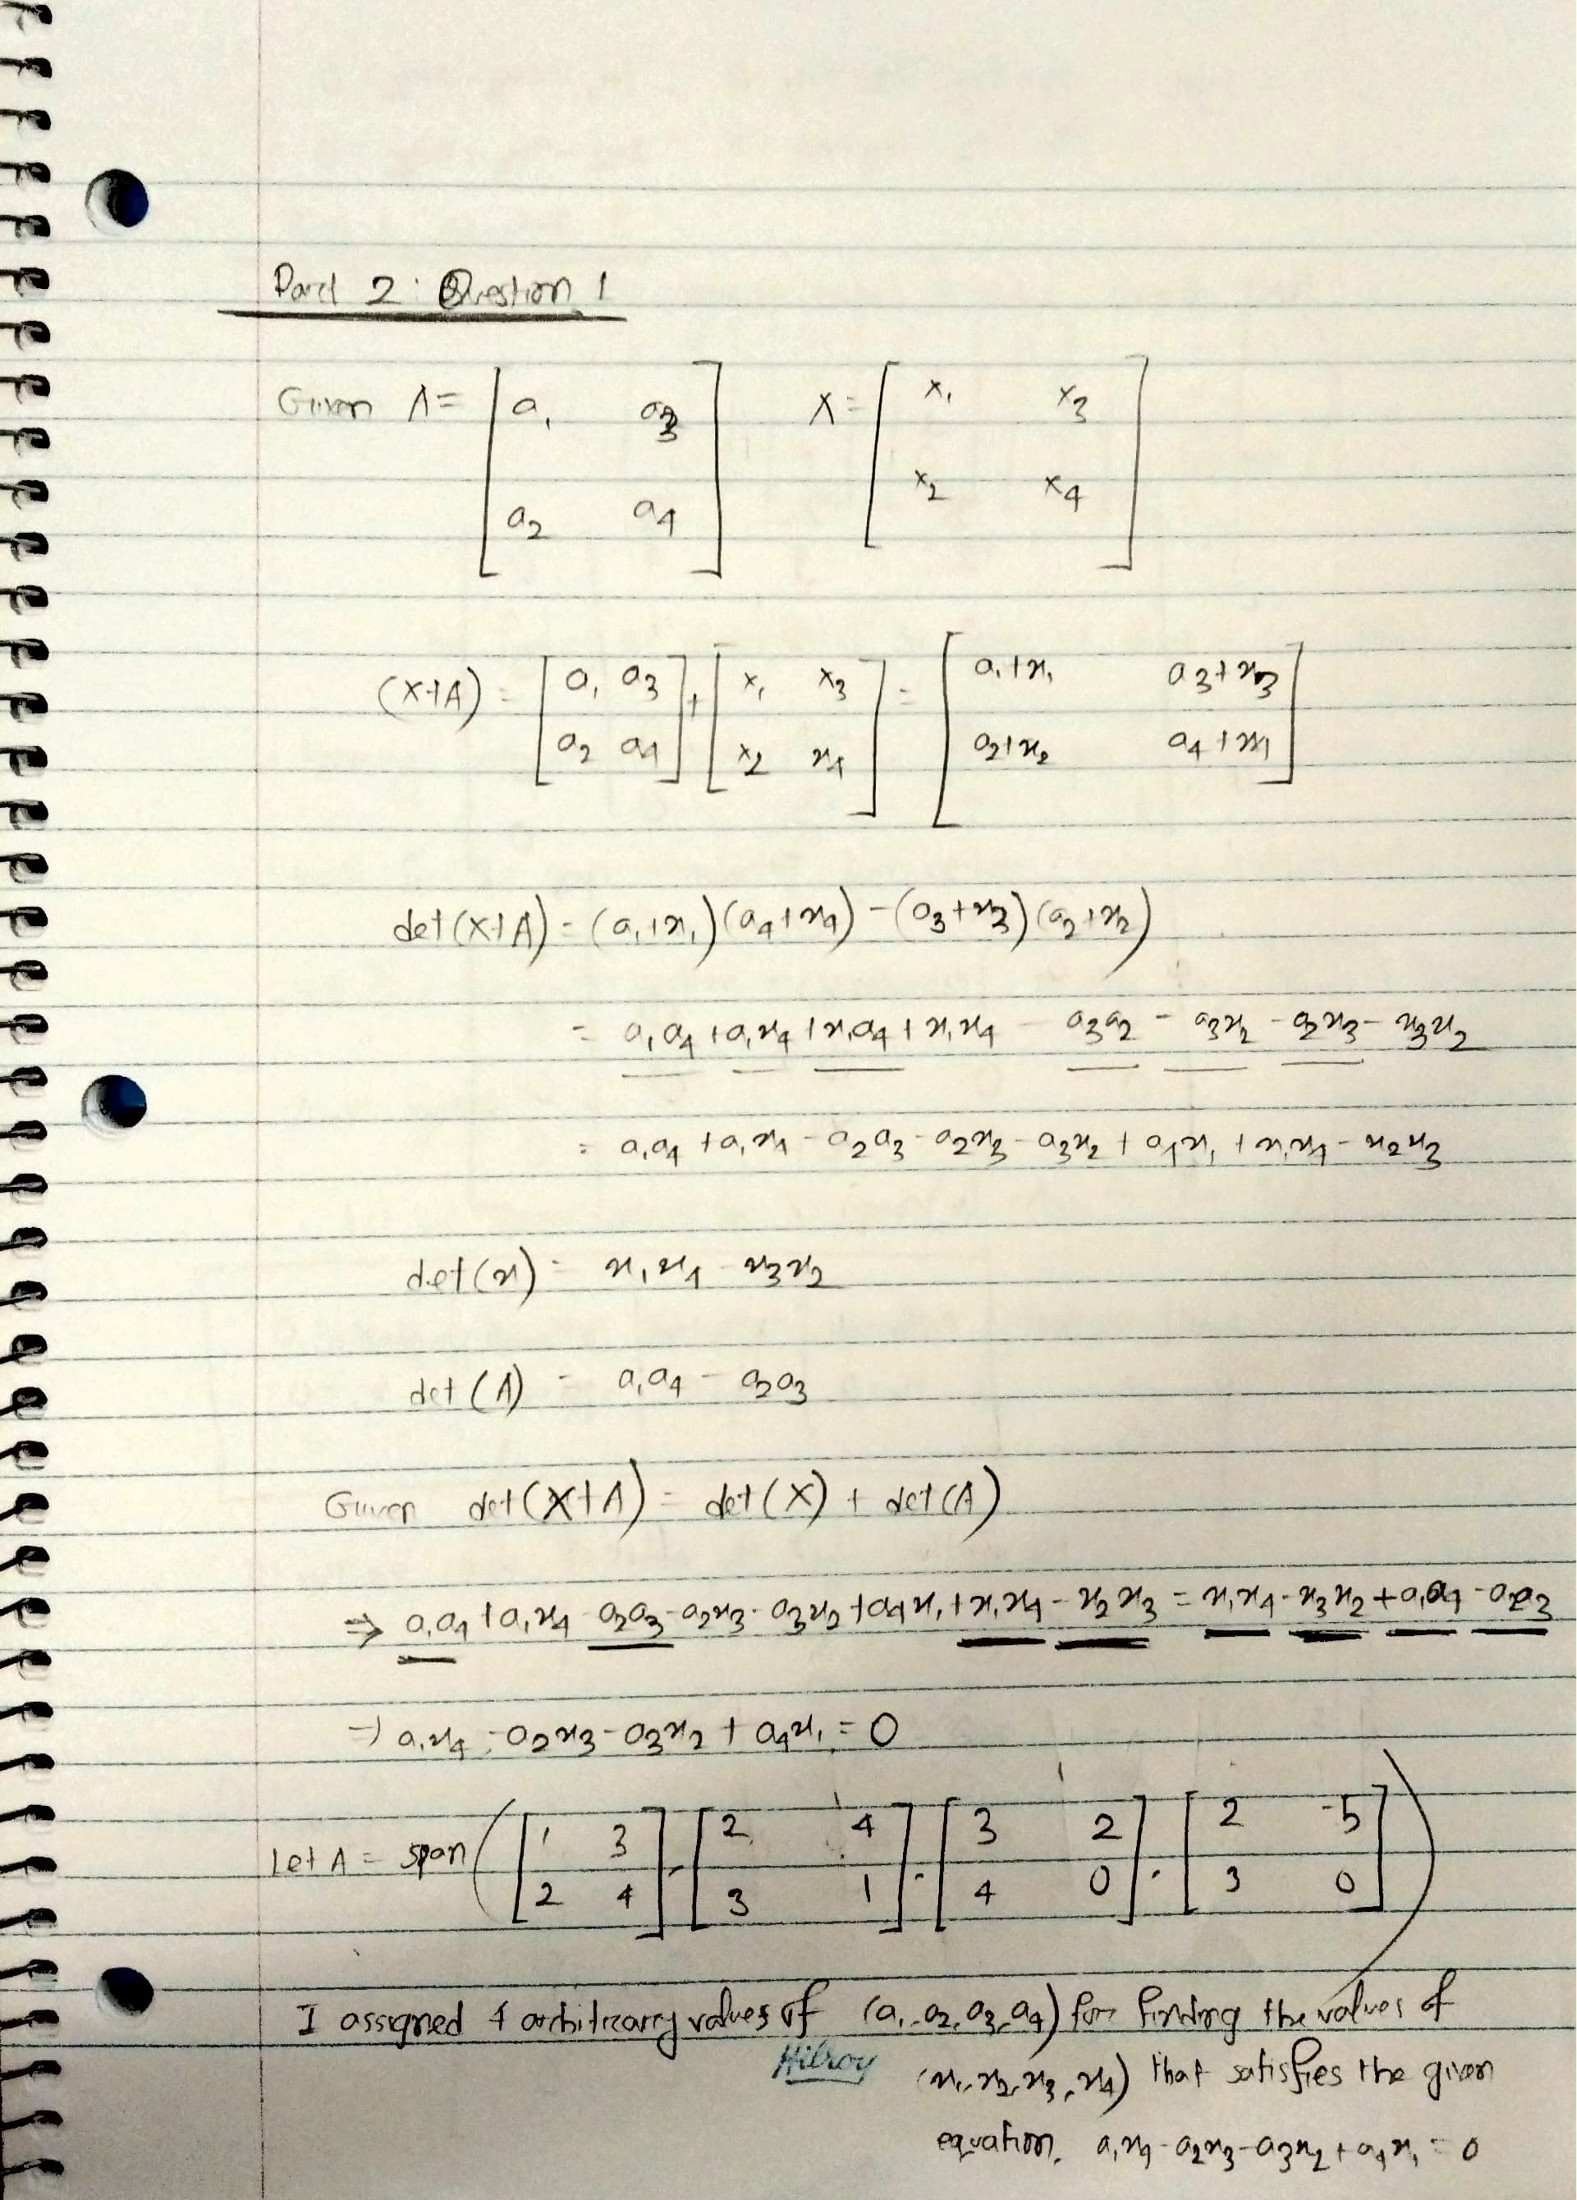 Part 2: Question 1
Given A = [ a₁ a₃ ] X = [ x₁ x₃ ]
[ a₂ a₄ ] [ x₂ x₄ ]
(X+A) = [ a₁ a₃ ] + [ x₁ x₃ ] = [ a₁+x₁ a₃+x₃ ]
[ a₂ a₄ ] [ x₂ x₄ ] [ a₂+x₂ a₄+x₄ ]
det(X+A) = (a₁+x₁)(a₄+x₄) - (a₃+x₃)(a₂+x₂)
= a₁a₄ + a₁x₄ + x₁a₄ + x₁x₄ - a₃a₂ - a₃x₂ - a₂x₃ - x₃x₂
= a₁a₄ + a₁x₄ - a₂a₃ - a₂x₃ - a₃x₂ + a₄x₁ + x₁x₄ - x₂x₃
det(x) = x₁x₄ - x₃x₂
det(A) = a₁a₄ - a₂a₃
Given det(X+A) = det(X) + det(A)
⇒ a₁a₄ + a₁x₄ - a₂a₃ - a₂x₃ - a₃x₂ + a₄x₁ + x₁x₄ - x₂x₃ = x₁x₄ - x₃x₂ + a₁a₄ - a₂a₃
⇒ a₁x₄ - a₂x₃ - a₃x₂ + a₄x₁ = 0
Let A = span ( [ 1 3 ] , [ 2 4 ] , [ 3 2 ] , [ 2 -5 ] )
[ 2 4 ] [ 3 1 ] [ 4 0 ] [ 3 0 ]
I assigned 4 arbitrary values of (a₁, a₂, a₃, a₄) for finding the values of
Hilroy (x₁, x₂, x₃, x₄) that satisfies the given
equation. a₁x₄ - a₂x₃ - a₃x₂ + a₄x₁ = 0